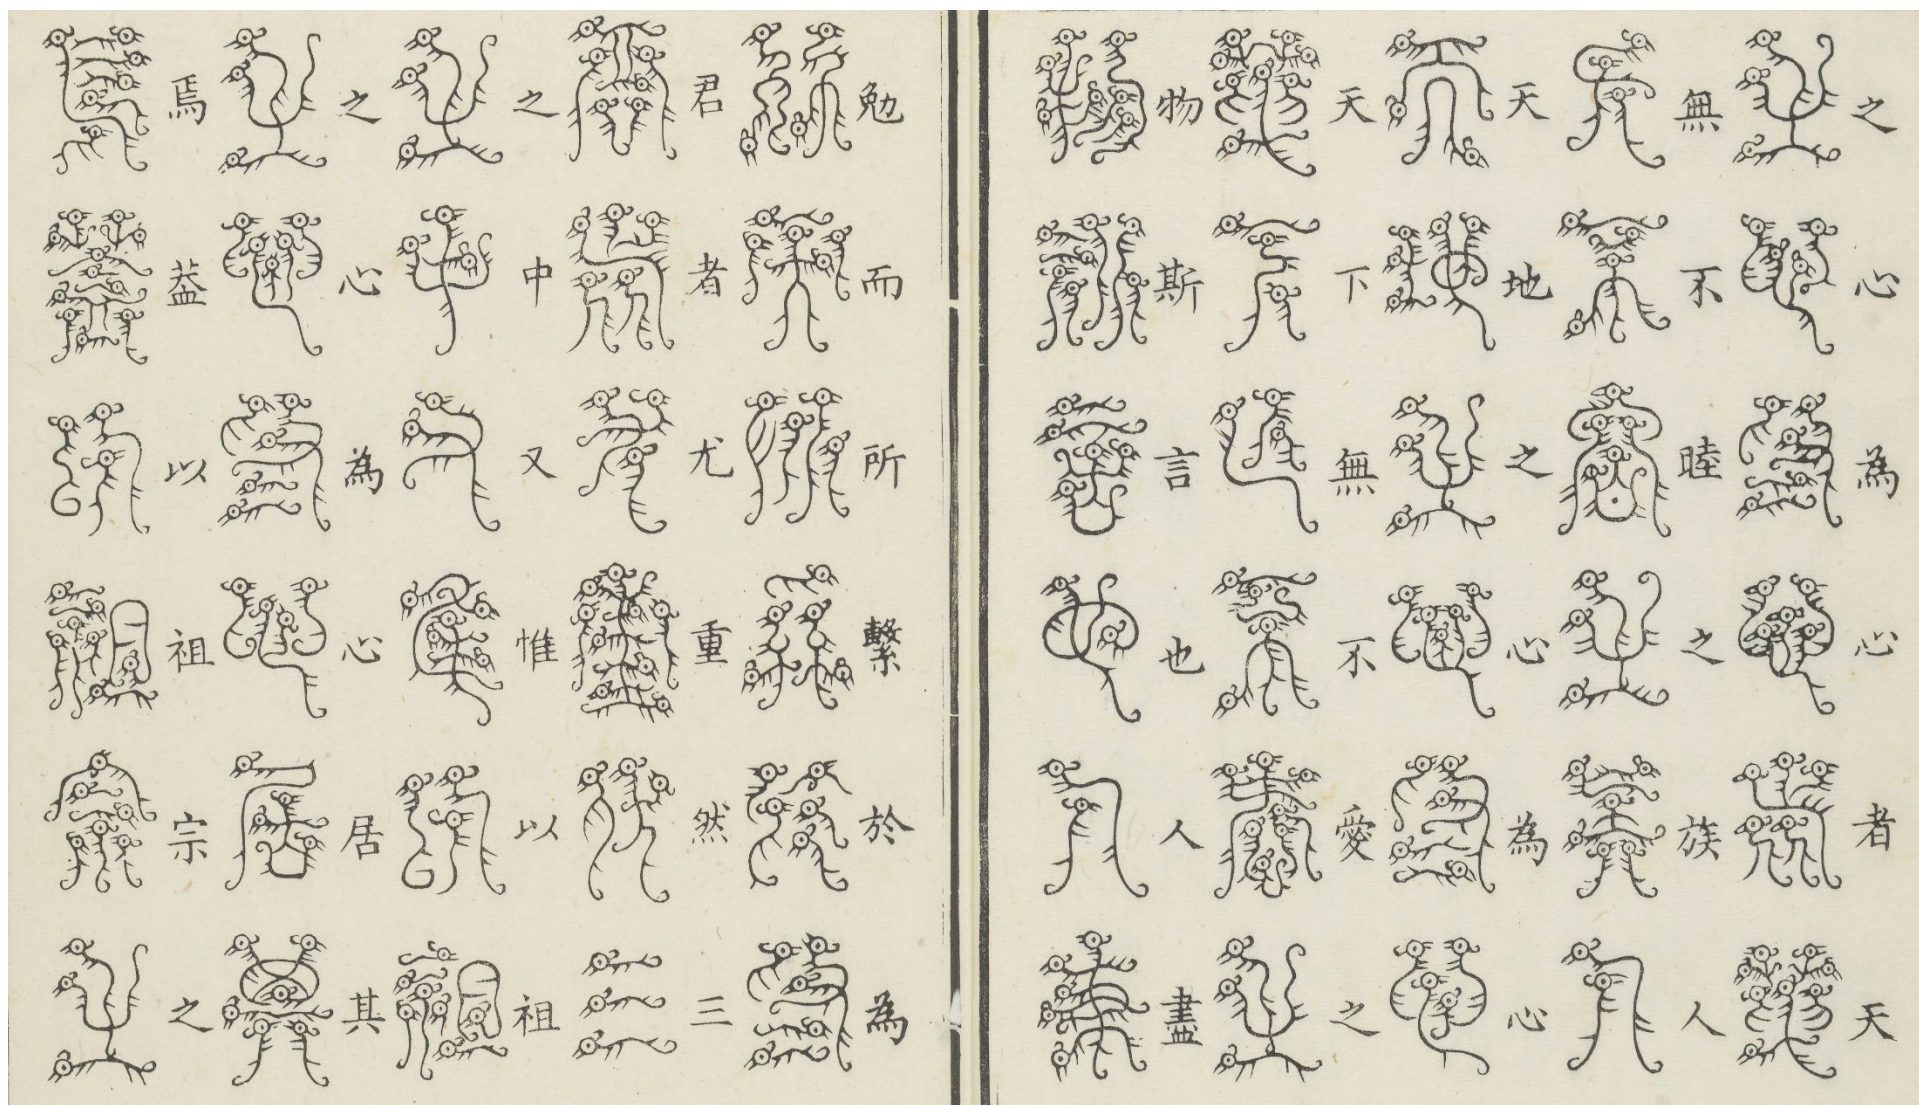 之心為心者天
無不睦之族人
天地之心為心
天下無不愛之
物斯言也人盡
勉而所繫於為
君者尤重然三
之中又惟以祖
之心為心居其
焉葢以祖宗之